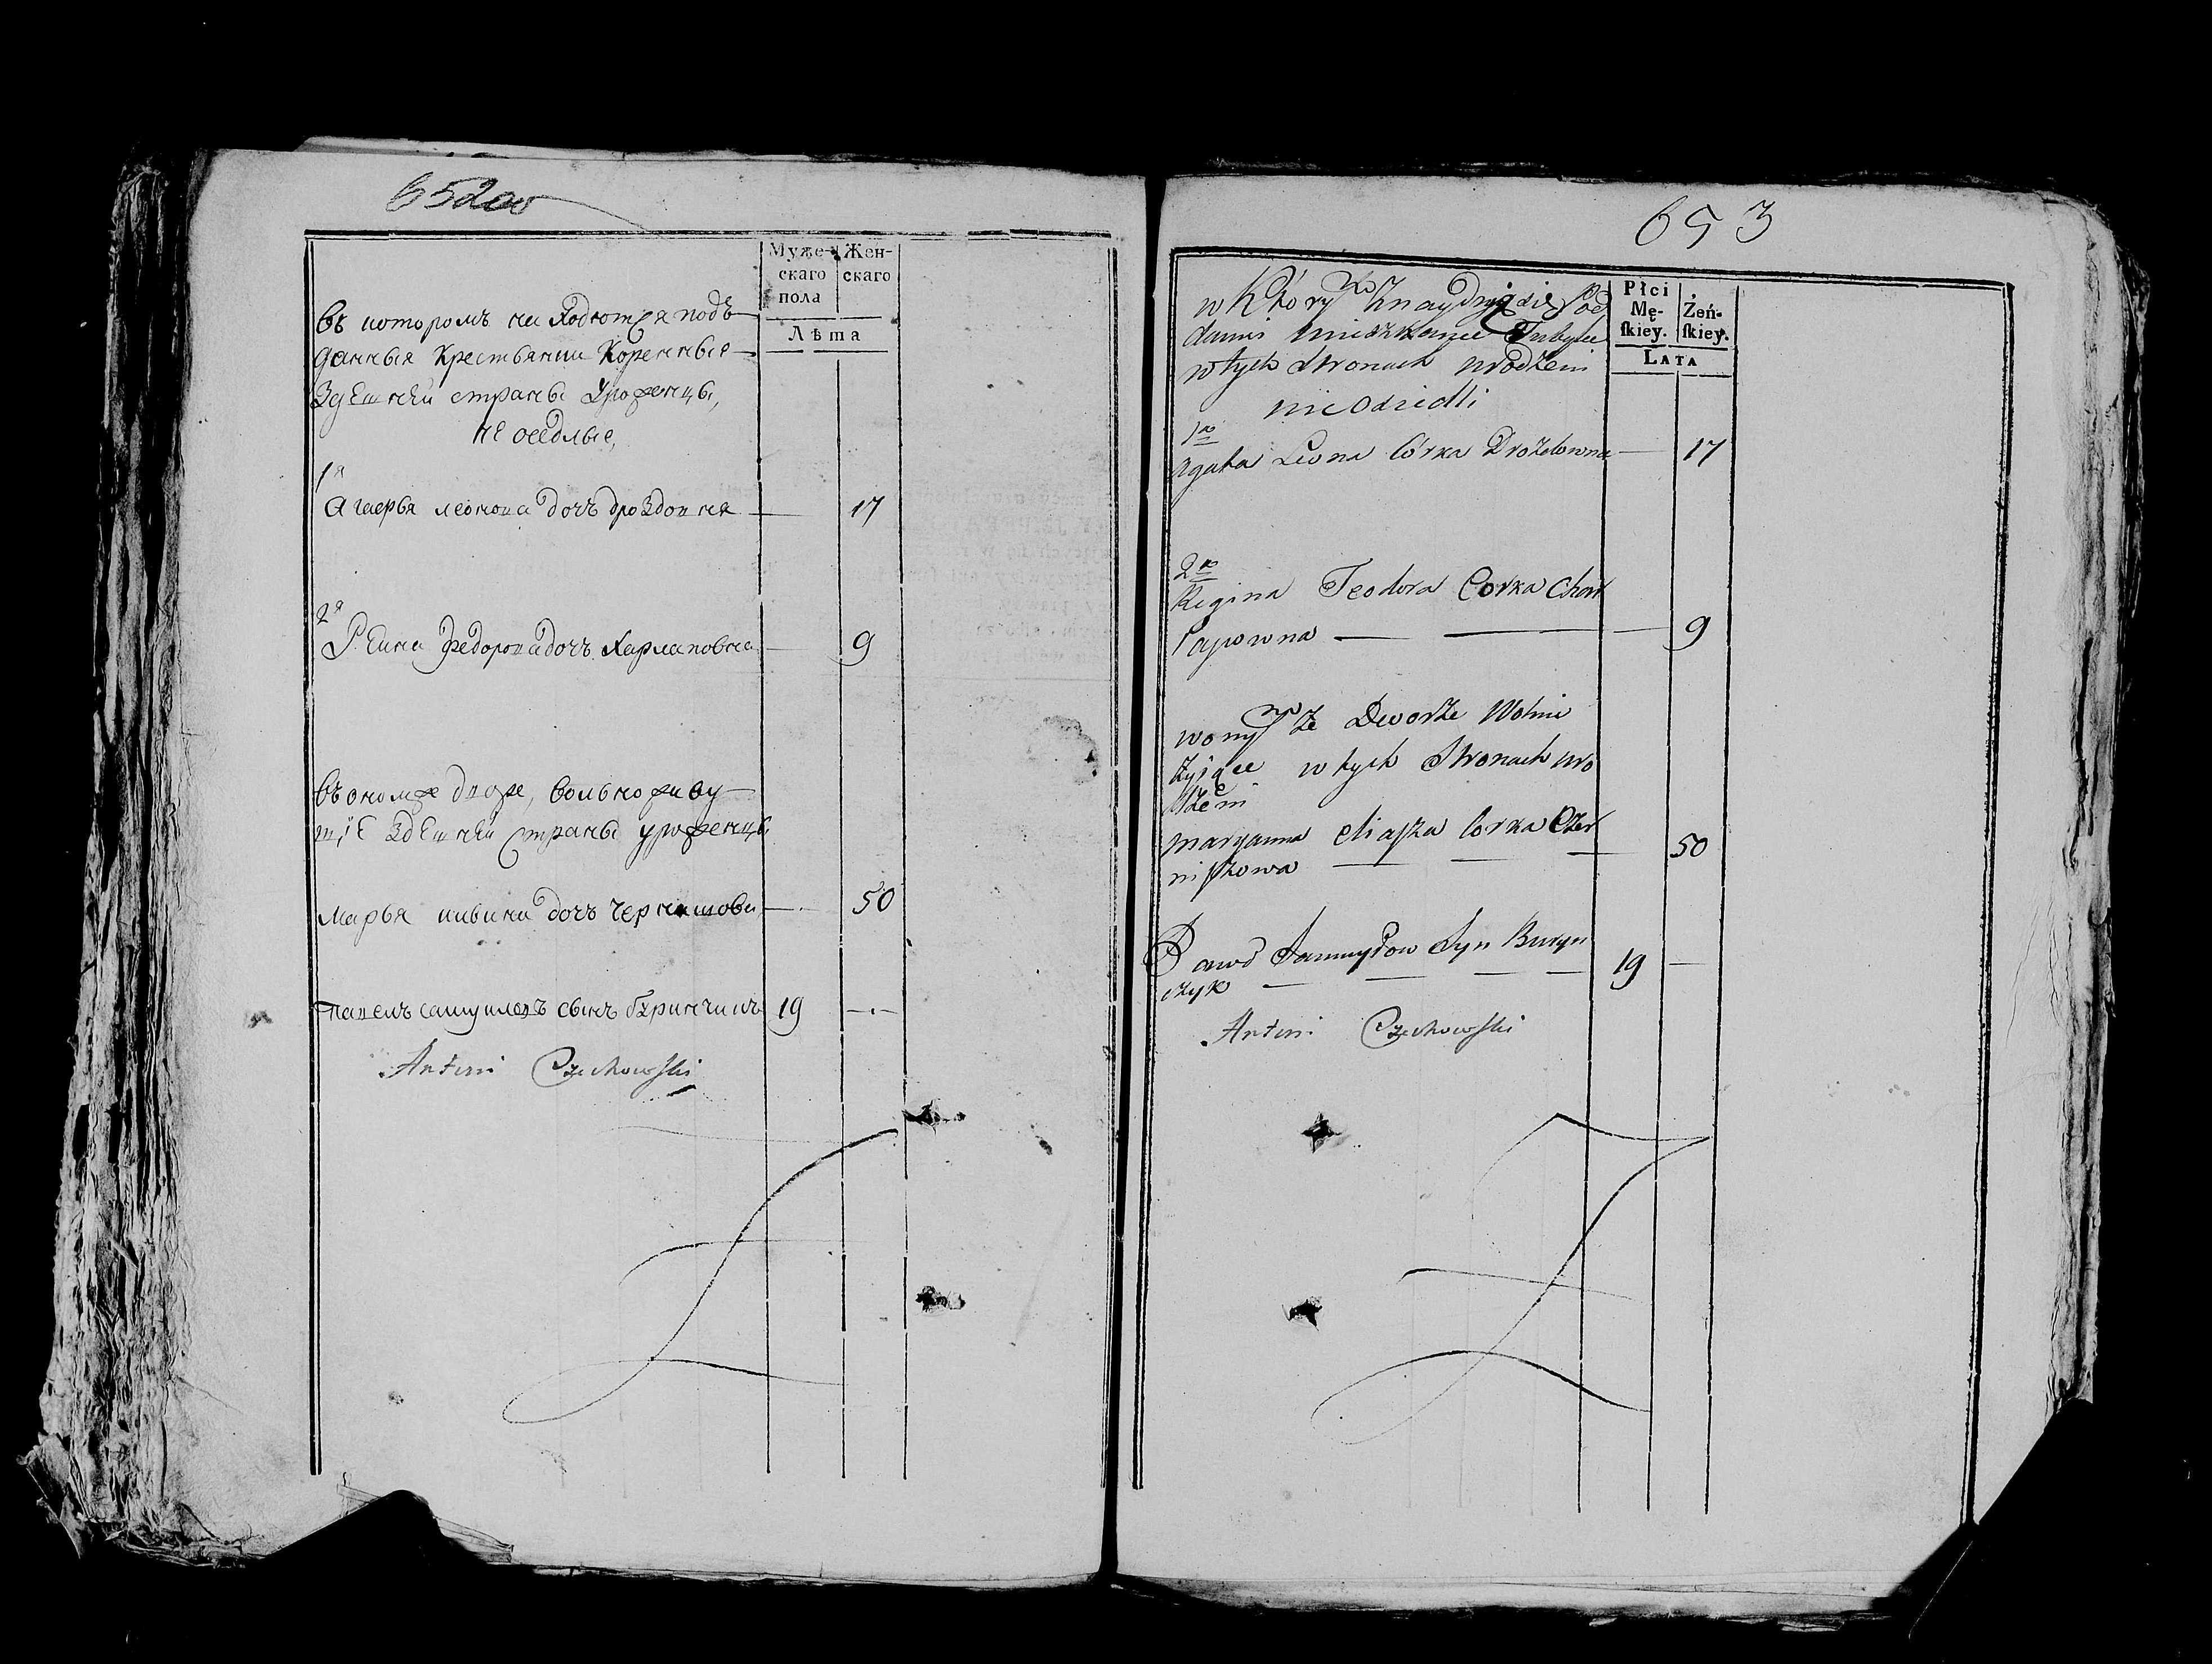 652об
Муже-
скаго
пола
Жен-
скаго
Лѣта
въ которомъ находются подъ
данныя крестьянии коренные
здешней страны уроженцы,
не оседлые,
1я
Агафья леонова дочь дроздовна 17
2я
Федорова дочь 9
въономже дворе, вольно живу
щїе здешней страны уроженцы
марья дочь чернышова 50
павелъ самуиловъ сынъ 19
Antoni Czechowski
653
Płci
Mę-
ſkiey.
Żeń-
ſkiey.
LATA
w ktory znayduią się Pod
danni
w tych stronach urodzeni
nieosiedli
1a
Agata Leona Córka 17
2a
Regina Teodora Corka Char
łapowna 9
że Dworze Wolnie
żyiące w tych Stronach uro
dzeni
maryanna Corka Czer
niszowa 50
Syn Buryn
czyk 19
Antoni Czechowski